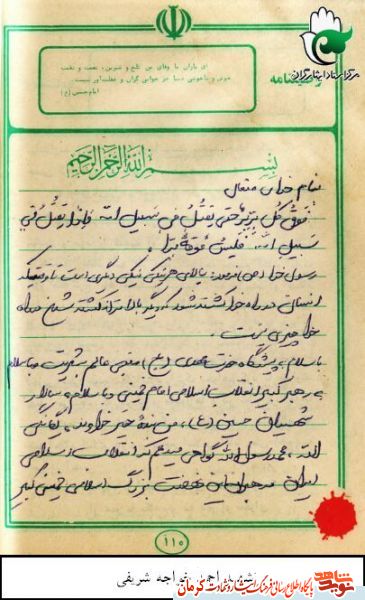 مرکز اسناد ایثارگران
وصیتنامه
ای یاران با وفای من تلخ و شیرین، نعمت و نقمت
خوش و ناخوشی دنیا جز خوابی گران و غفلت‌آور نیست.
امام حسین (ع)
بسم الله الرحمن الرحیم
بنام خدای متعال
فوق کل بر بر حتی یقتل فی سبیل الله فاذا یقتل فی
سبیل الله فلیس فوقه بر.
رسول خدا (ص) فرمود: بالای هر نیکی نیکی دیگری است تا وقتیکه
انسان در راه خدا کشته شود که دیگر بالاتر از کشته شدن در راه
خدا چیزی نیست.
با سلام به پیشگاه حضرت مهدی (عج) منجی عالم بشریت و با سلام
به رهبر کبیر انقلاب اسلامی امام خمینی و با سلام به سالار
شهیدان حسین (ع)، من بنده حقیر خداوند، به یگانگی
الله، محمد رسول الله گواهی میدهم که انقلاب اسلامی
ایران رهبر این نهضت بزرگ اسلامی خمینی کبیر
۱۱۰
شهید احمد خواجه شریفی
شاهد
نوید
پایگاه اطلاع رسانی فرهنگ ایثار و شهادت کرمان